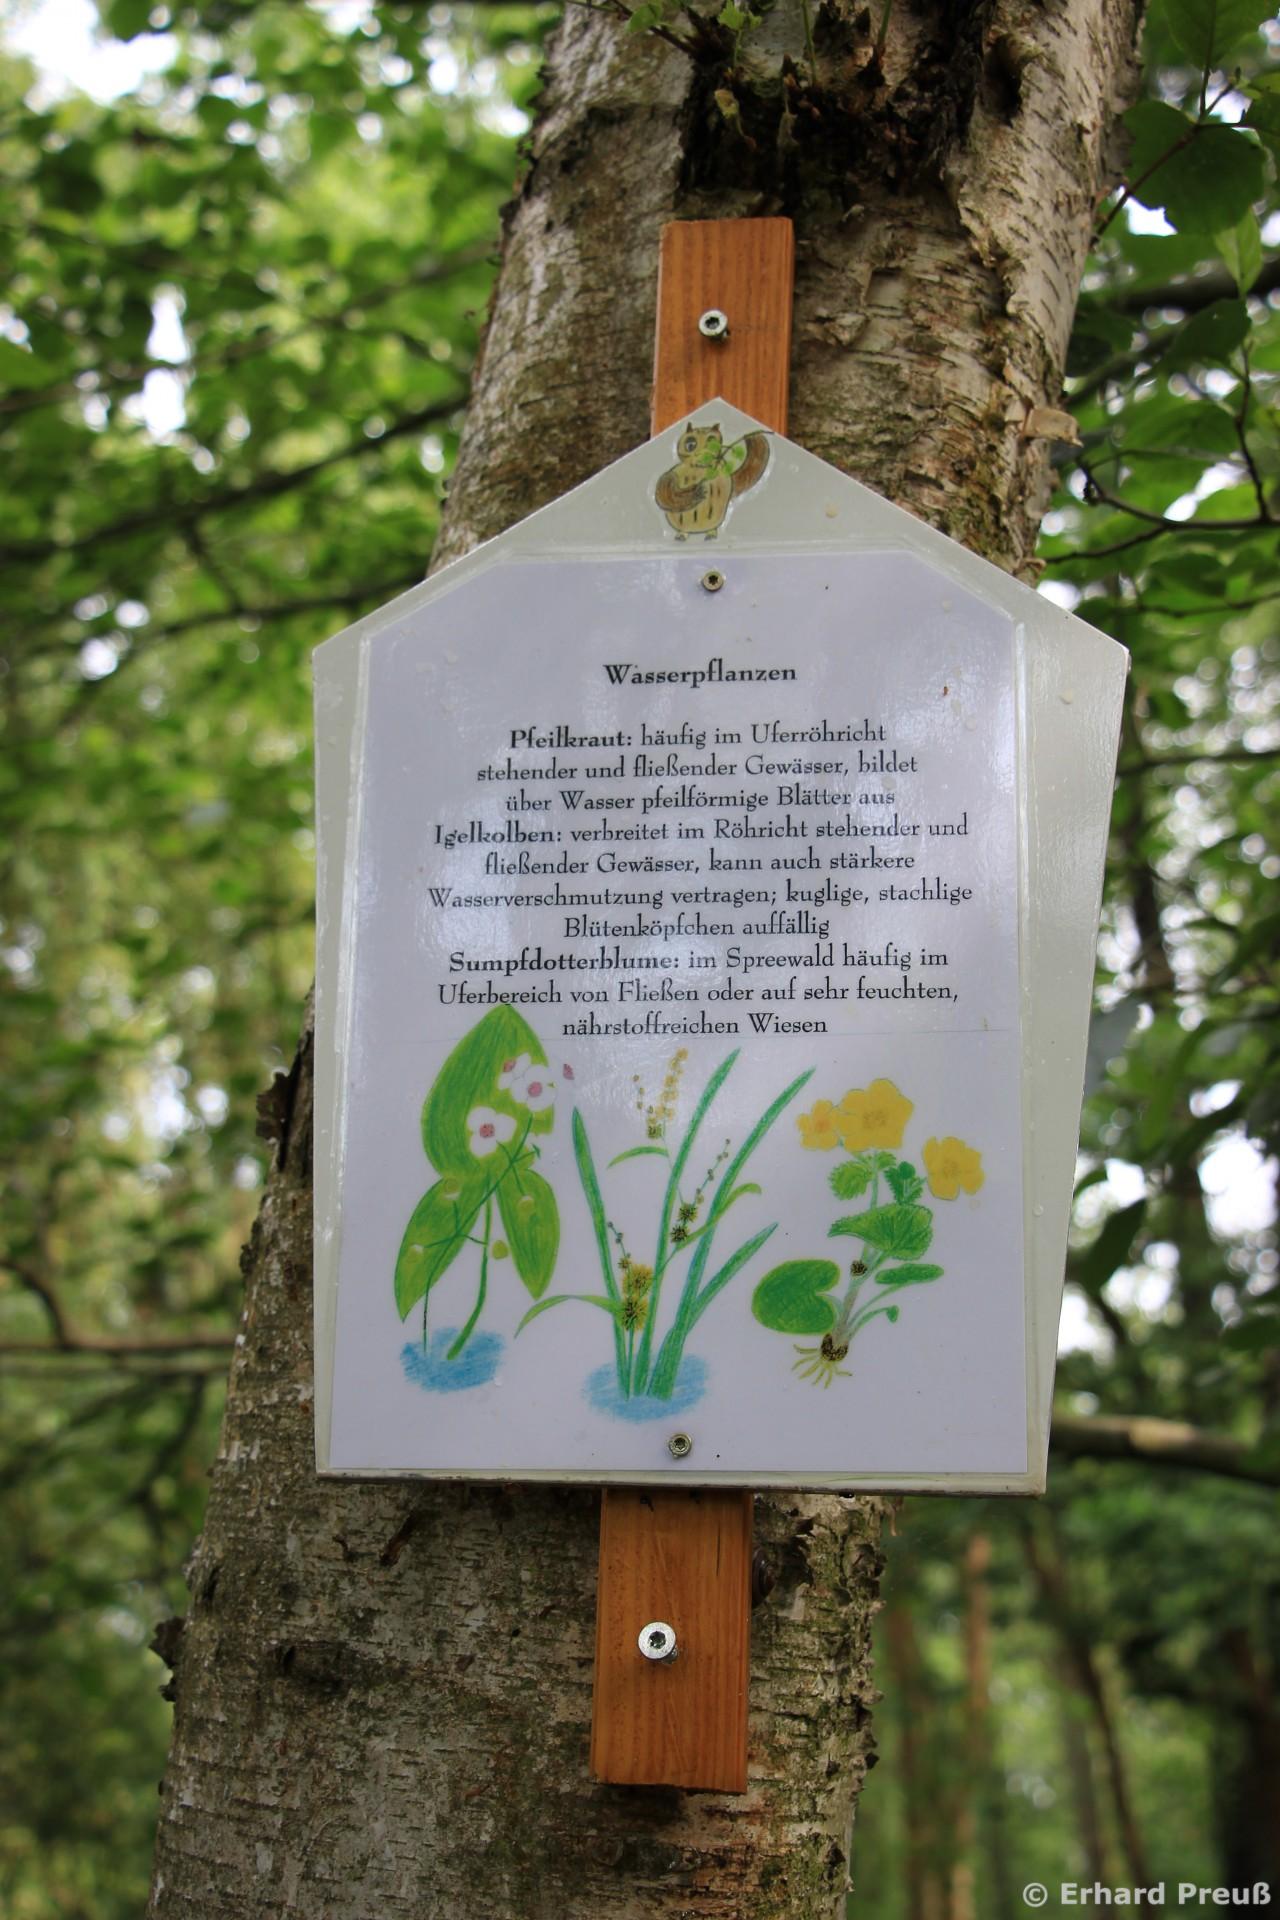 Wasserpflanzen
Pfeilkraut: häufig im Uferröhricht
stehender und fließender Gewässer, bildet
über Wasser pfeilförmige Blätter aus
Igelkolben: verbreitet im Röhricht stehender und
fließender Gewässer, kann auch stärkere
Wasserverschmutzung vertragen; kuglige, stachlige
Blütenköpfchen auffällig
Sumpfdotterblume: im Spreewald häufig im
Uferbereich von Fließen oder auf sehr feuchten,
nährstoffreichen Wiesen
© Erhard Preuß